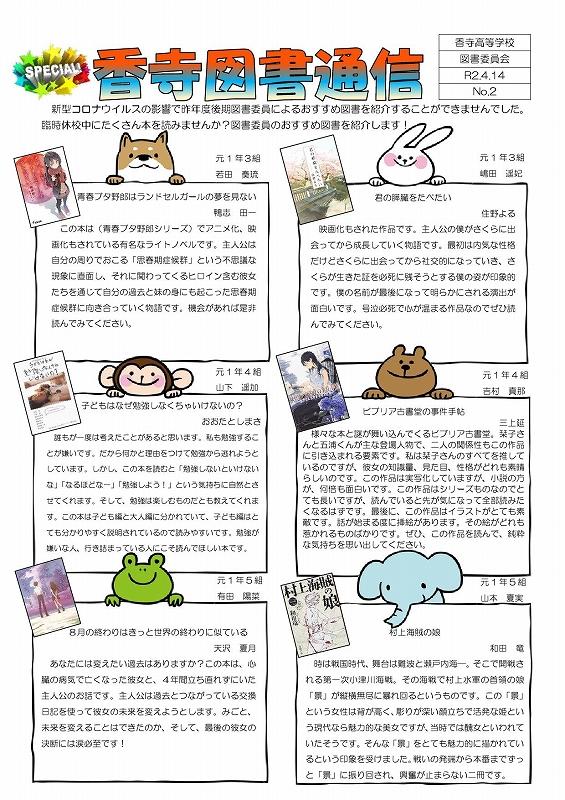 SPECIAL!
香寺図書通信
香寺高等学校
図書委員会
R2,4,14
No,2
新型コロナウイルスの影響で昨年度後期図書委員によるおすすめ図書を紹介することができませんでした。
臨時休校中にたくさん本を読みませんか？図書委員のおすすめ図書を紹介します！
元１年３組
若田 奏琉
青春ブタ野郎はランドセルガールの夢を見ない
鴨志 田一
この本は（青春ブタ野郎シリーズ）でアニメ化、映
画化もされている有名なライトノベルです。主人公は
自分の周りでおこる「思春期症候群」という不思議な
現象に直面し、それに関わってくるヒロイン含む彼女
たちを通じて自分の過去と妹の身にも起こった思春期
症候群に向き合っていく物語です。機会があれば是非
読んでみてください。
元１年３組
嶋田 遥妃
君の膵臓をたべたい
住野よる
映画化もされた作品です。主人公の僕がさくらに出
会ってから成長していく物語です。最初は内気な性格
だけどさくらに出会ってから社交的になっていき、さ
くらが生きた証を必死に残そうとする僕の姿が印象的
です。僕の名前が最後になって明らかにされる演出が
面白いです。号泣必死で心が温まる作品なのでぜひ読
んでみてください。
元１年４組
山下 遥加
子どもはなぜ勉強しなくちゃいけないの？
おおたとしまさ
誰もが一度は考えたことがあると思います。私も勉強するこ
とが嫌いです。だから何かと理由をつけて勉強から逃れようと
しています。しかし、この本を読むと「勉強しないといけない
な」「なるほどなー」「勉強しよう！」という気持ちに自然とさ
せてくれます。そして、勉強は楽しむものだとも教えてくれま
す。この本は子ども編と大人編に分かれていて、子ども編はと
ても分かりやすく説明されているので読みやすいです。勉強が
嫌いな人、行き詰まっている人にこそ読んでほしい本です。
元１年４組
吉村 真那
ビブリア古書堂の事件手帖
三上延
様々な本と謎が舞い込んでくるビブリア古書堂。栞子さ
んと五浦くんが主な登場人物で、二人の関係性もこの作品
に引き込まれる要素です。私は栞子さんのすべてを推して
いるのですが、彼女の知識量、見た目、性格がどれも素晴
らしいのです。この作品は実写化していますが、小説の方
が、何倍も面白いです。この作品はシリーズものなのでと
ても長いですが、読んでいると先が気になって全部読みた
くなるはずです。最後に、この作品はイラストがとても素
敵です。話が始まる度に挿絵があります。その絵がどれも
惹かれるものばかりです。ぜひ、この作品を読んで、純粋
な気持ちを思い出してください。
元１年５組
有田 陽菜
８月の終わりはきっと世界の終わりに似ている
天沢 夏月
あなたには変えたい過去はありますか？この本は、心
臓の病気で亡くなった彼女と、４年間立ち直れずにいた
主人公のお話です。主人公は過去とつながっている交換
日記を使って彼女の未来を変えようとします。みごと、
未来を変えることはできたのか、そして、最後の彼女の
決断には涙必至です！
元１年５組
山本 夏実
村上海賊の娘
村上海賊の娘
和田 竜
時は戦国時代、舞台は難波と瀬戸内海―。そこで開戦さ
れる第一次小津川海戦。その海戦で村上水軍の首領の娘
「景」が縦横無尽に暴れ回るというものです。この「景」
という女性は背が高く、彫りが深い顔立ちで活発な姫とい
う現代なら魅力的な美女ですが、当時では醜女といわれて
いたそうです。そんな「景」をとても魅力的に描かれてい
るという印象を受けました。戦いの発端から本番までずっ
と「景」に振り回され、興奮が止まらない二冊です。